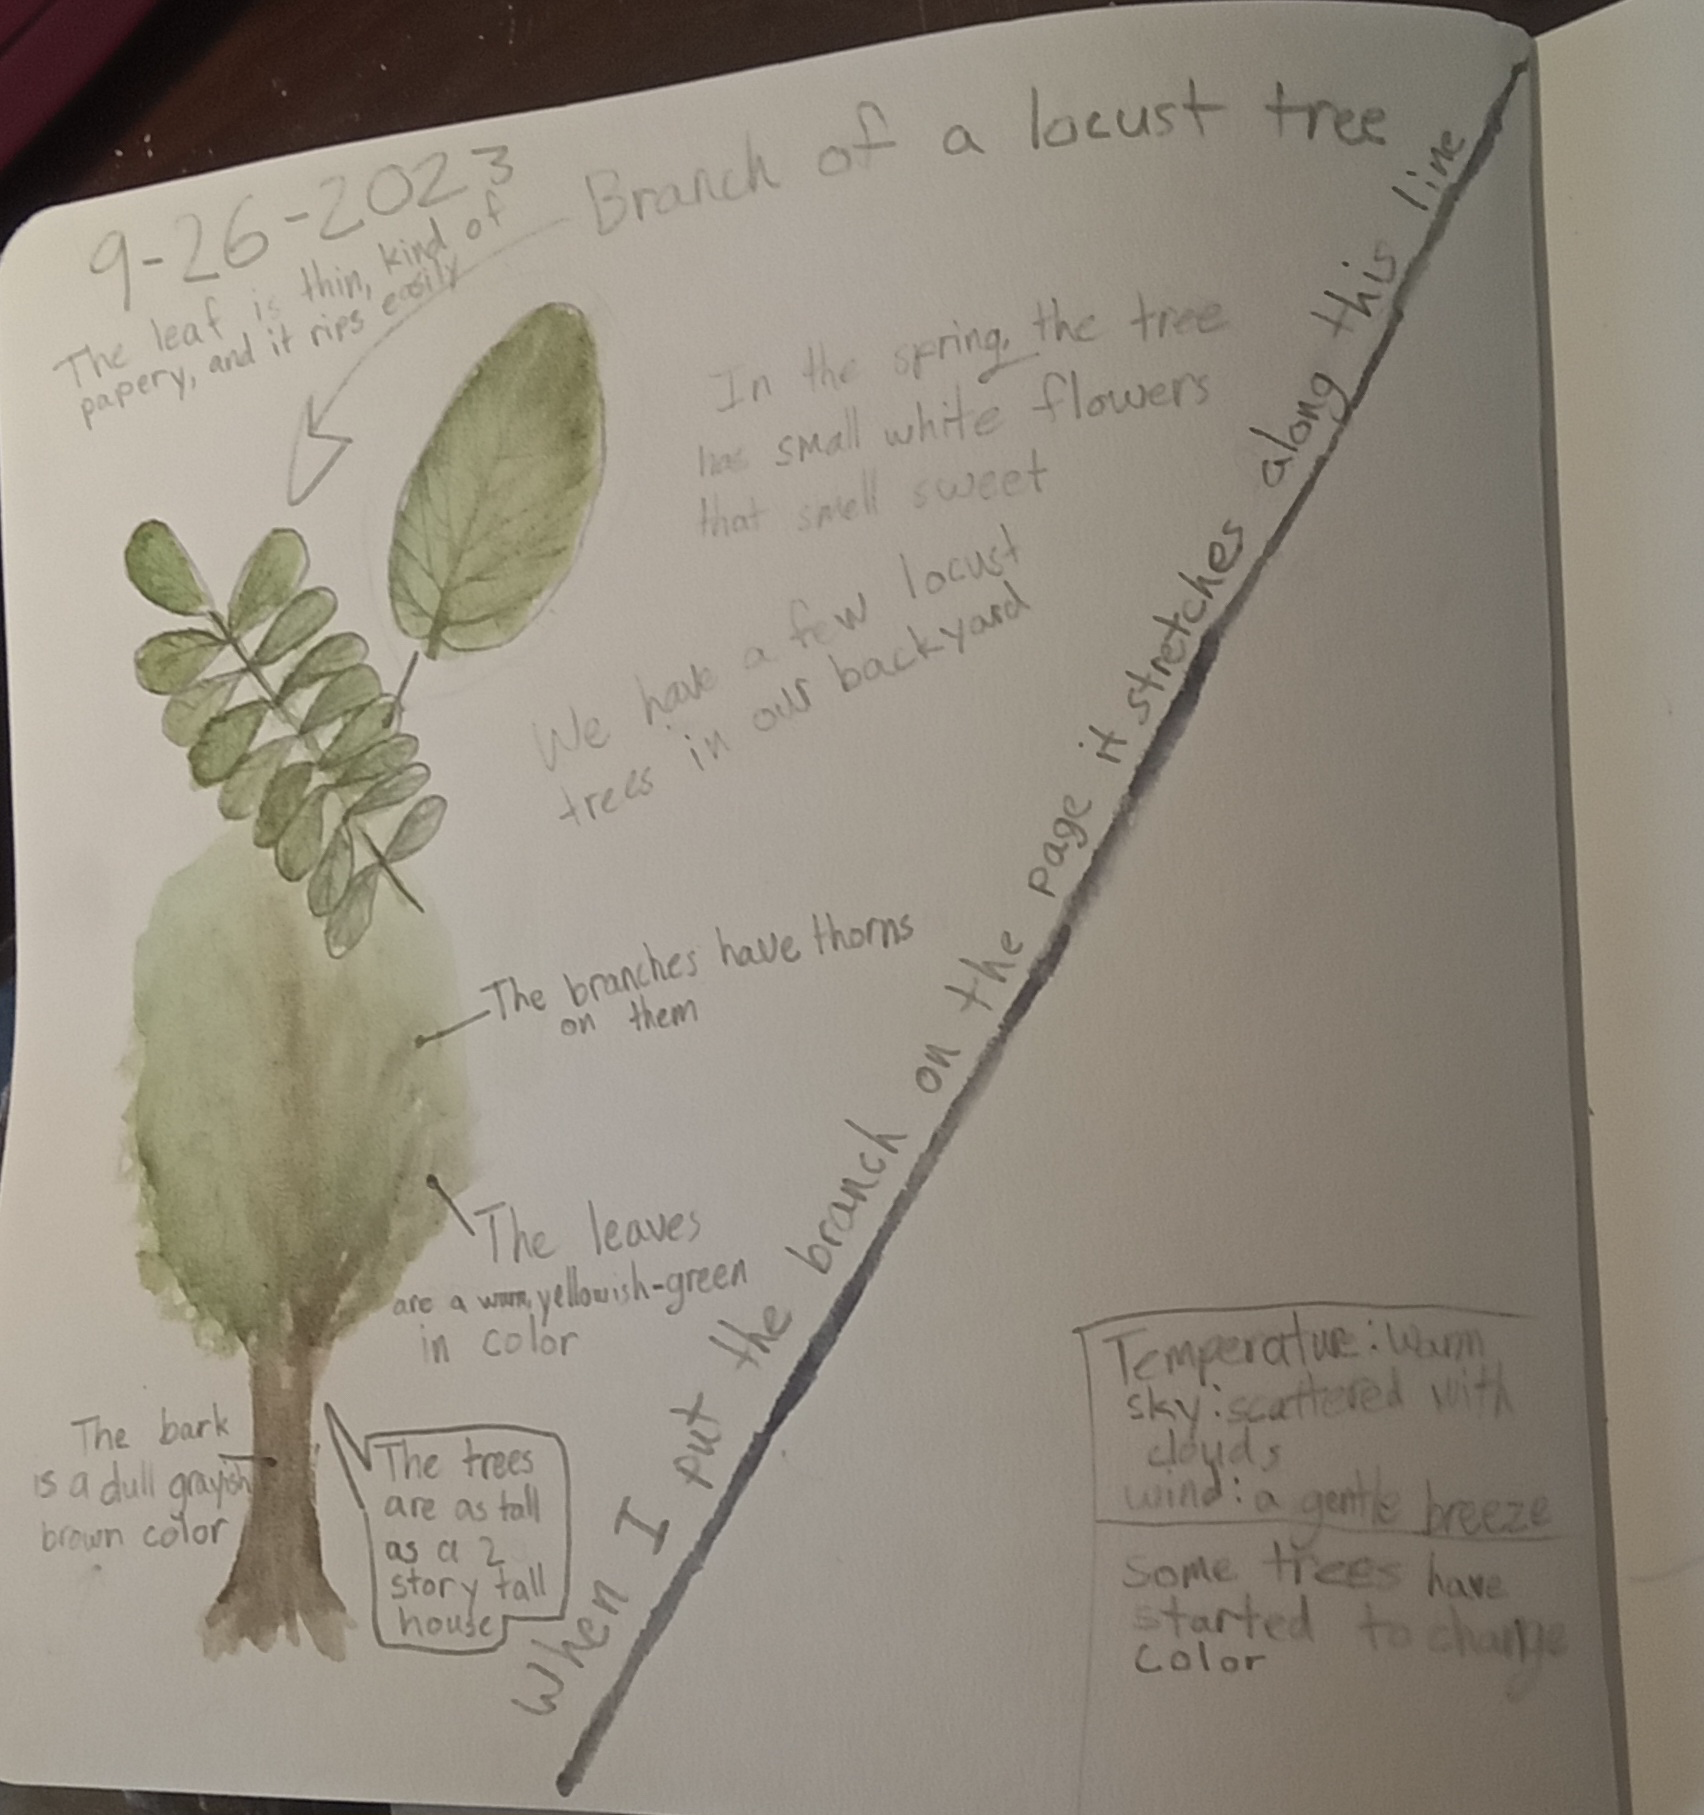 9-26-2023
Branch of a locust tree
The leaf is thin, kind of
papery, and it rips easily
In the spring, the tree
has small white flowers
that smell sweet
We have a few locust
trees in our backyard
The branches have thorns
on them
The leaves
are a warm, yellowish-green
in color
The bark
is a dull grayish
brown color
The trees
are as tall
as a 2
story tall
house
When I put the branch on the page it stretches along this line
Temperature: warm
sky: scattered with
clouds
wind: a gentle breeze
Some trees have
started to change
color